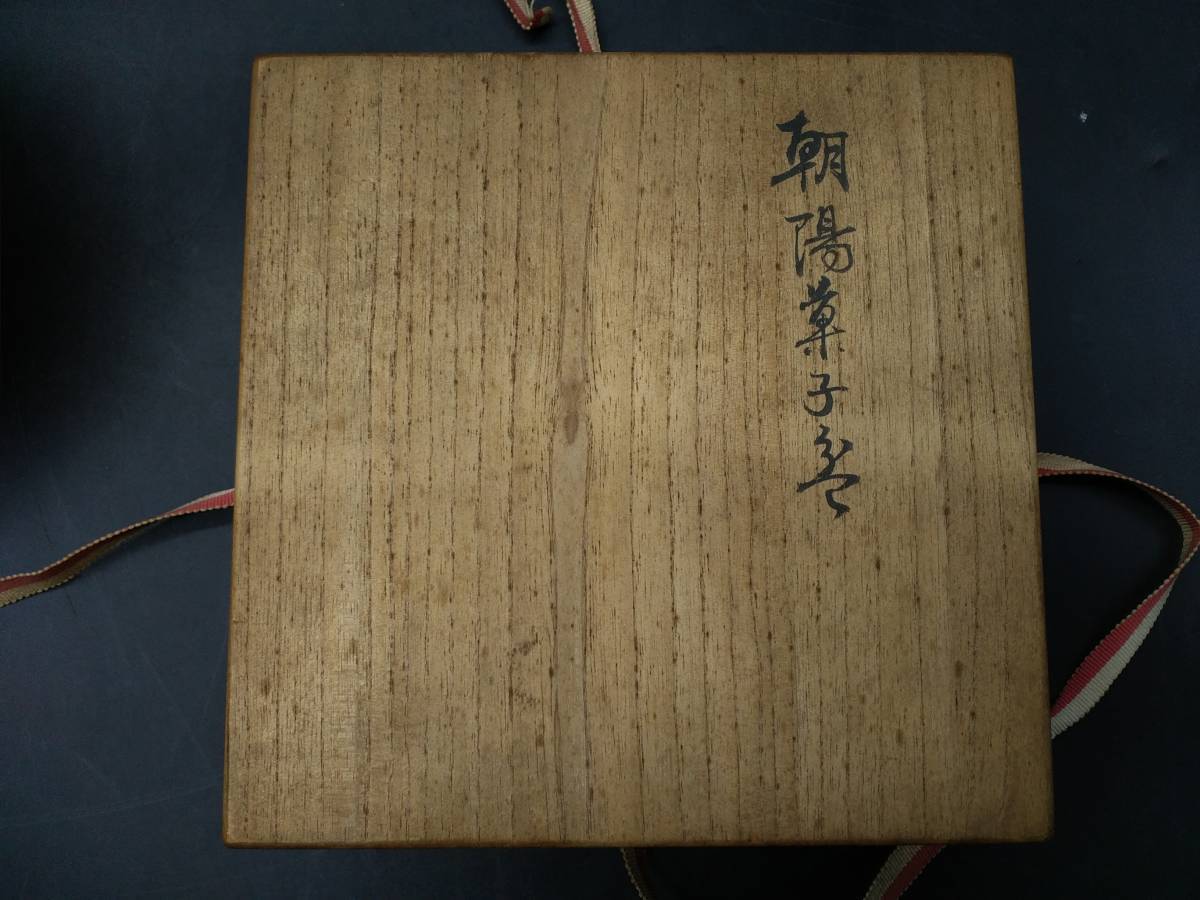 朝陽菓子盆